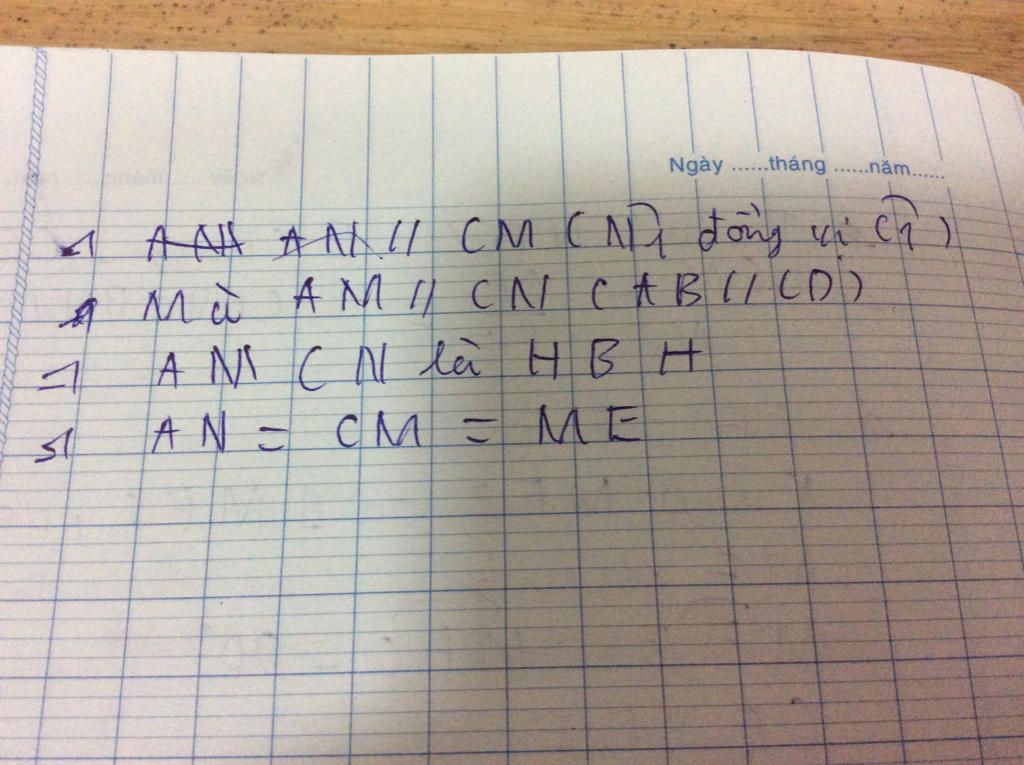 Ngày ......tháng ......năm......
=> AN // CM (N̂1 đồng vị Ĉ1)
=> Mà AM // CN (AB // CD)
=> AMCN là HBH
=> AN = CM = ME